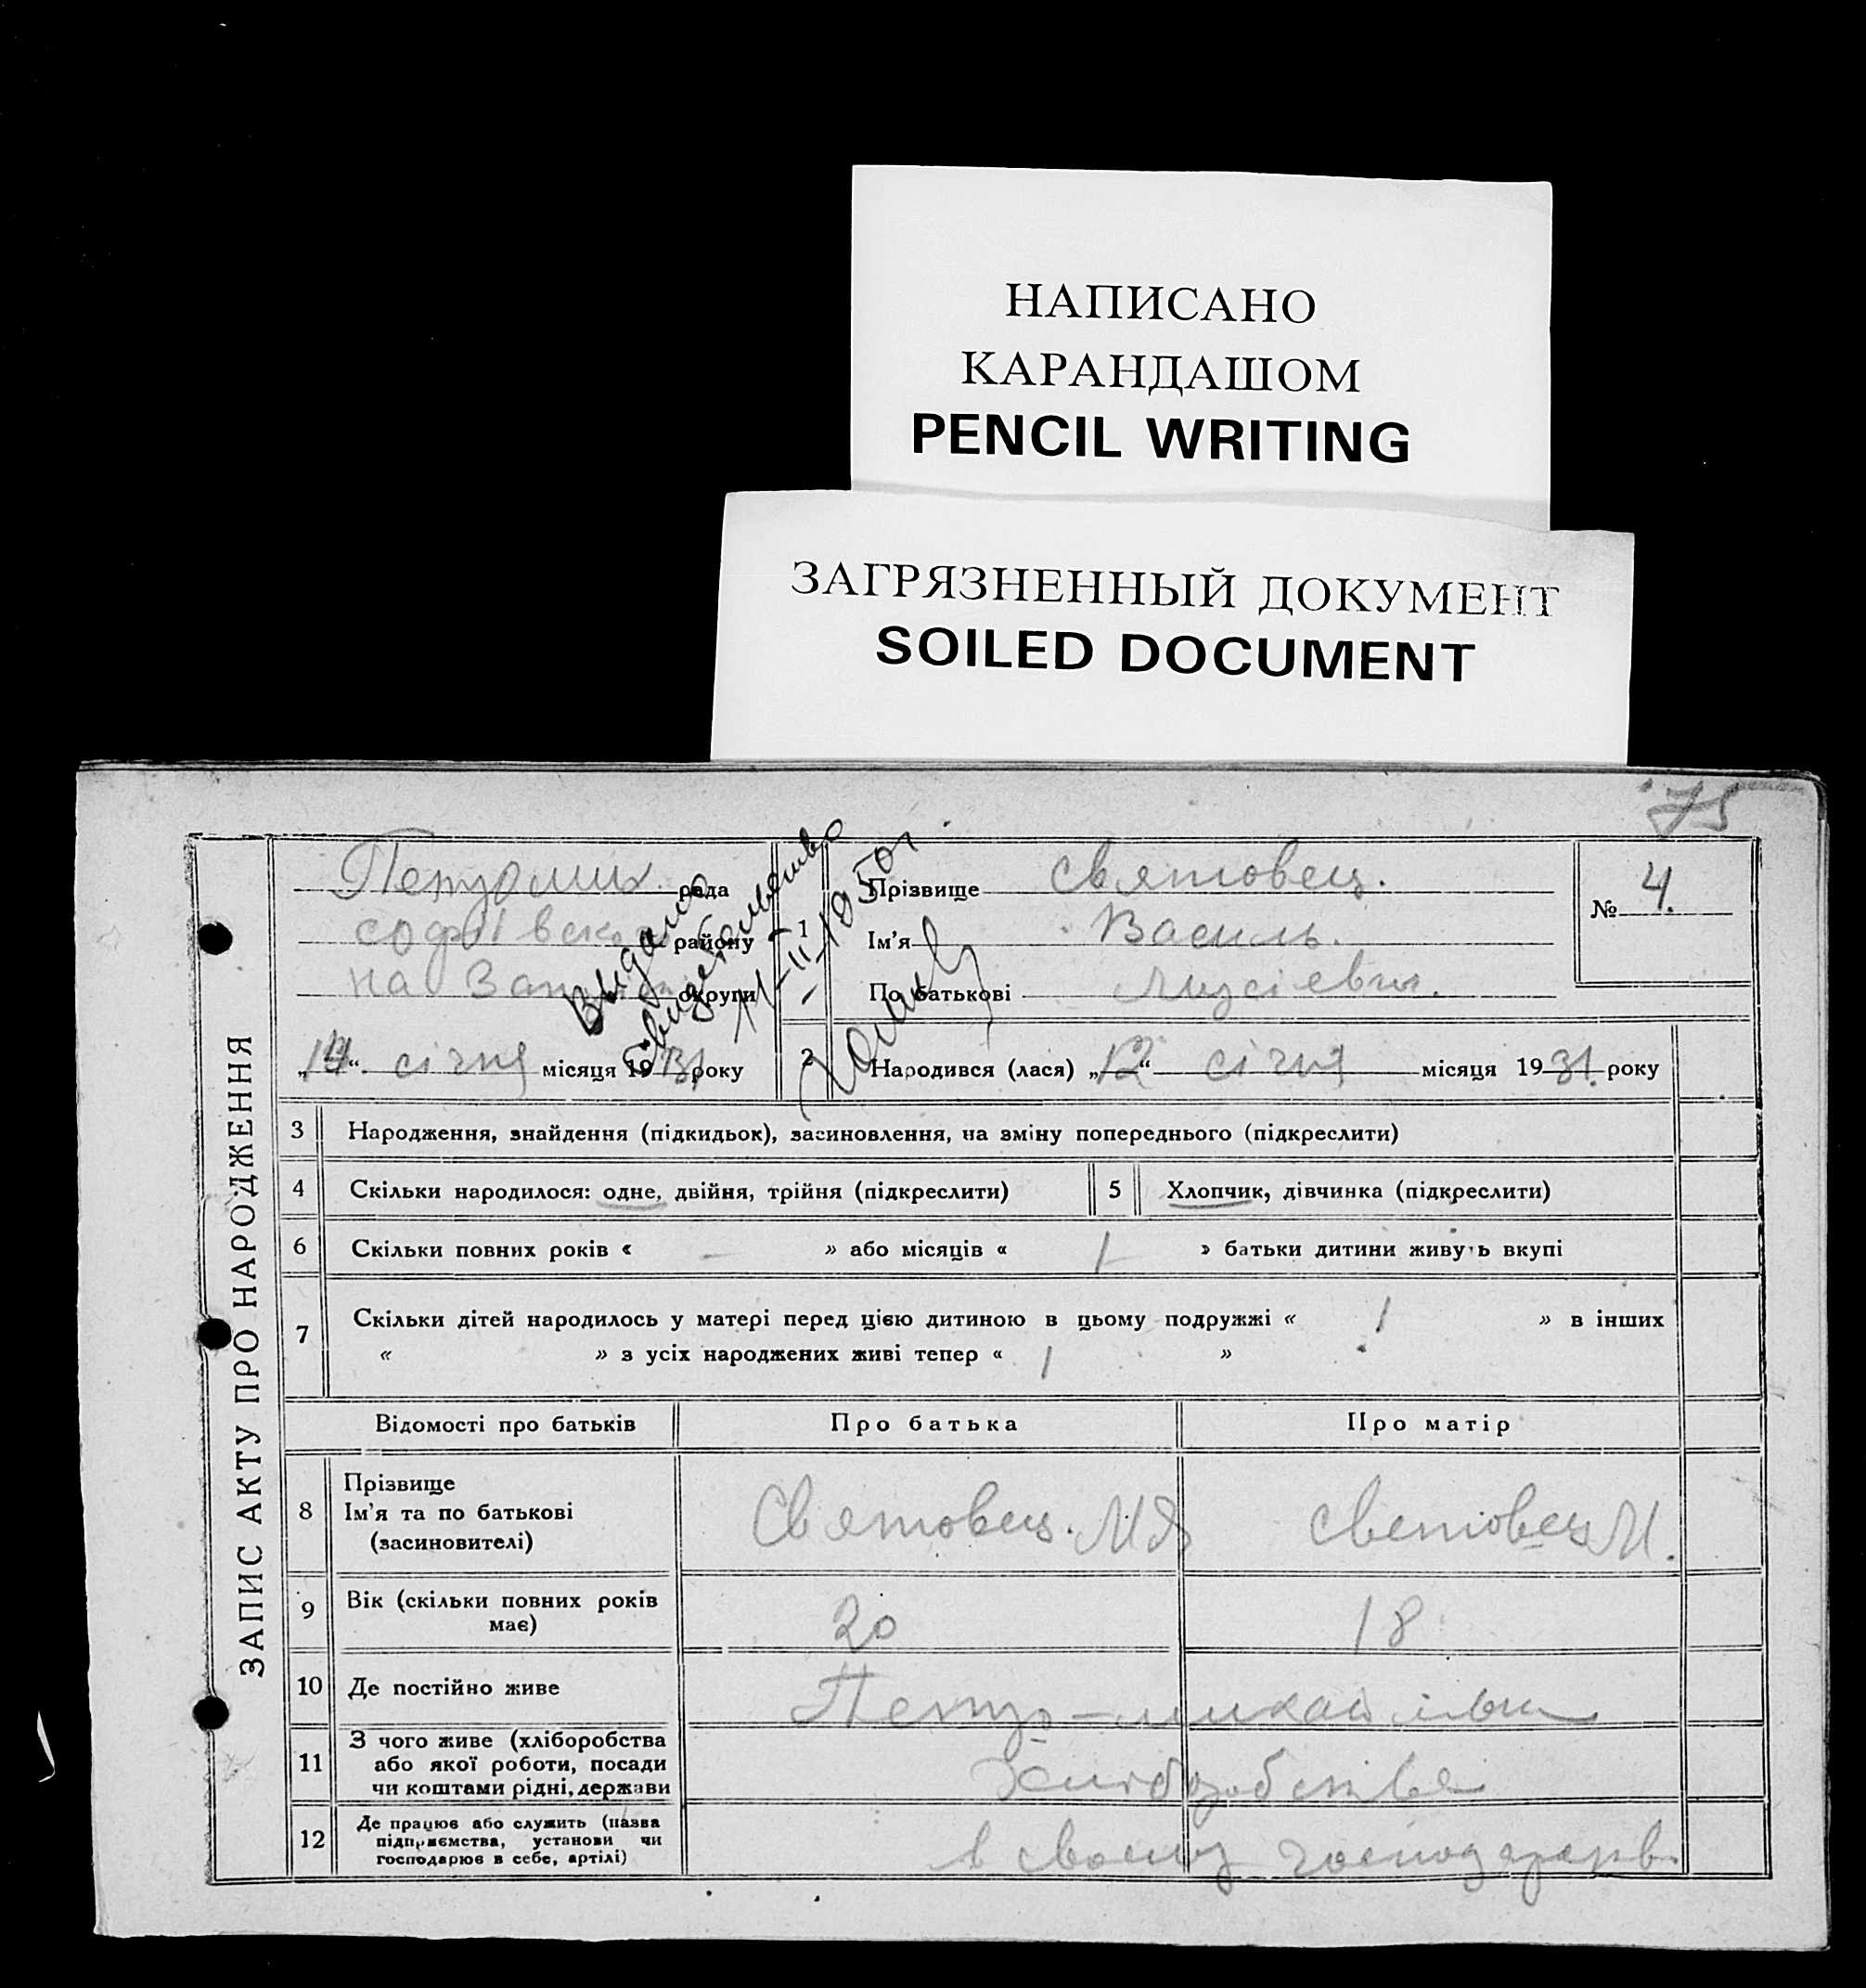 НАПИСАНО
КАРАНДАШОМ
PENCIL WRITING
ЗАГРЯЗНЕННЫЙ ДОКУМЕНТ
SOILED DOCUMENT
75
ЗАПИС АКТУ ПРО НАРОДЖЕННЯ
рада
району
округи
„14“ січня місяця 1931 року
Видано
свидетельство
11-II-1950г
1 Прізвище Святовец.
Ім'я Василь.
По батькові
№ 4.
2 Народився (лася) „12“ січня місяця 1931 року
3 Народження, знайдення (підкидьок), засиновлення, на зміну попереднього (підкреслити)
4 Скільки народилося: одне, двійня, трійня (підкреслити)
5 Хлопчик, дівчинка (підкреслити)
6 Скільки повних років « — » або місяців « 1 » батьки дитини живуть вкупі
7 Скільки дітей народилось у матері перед цією дитиною в цьому подружжі « 1 » в інших
« » з усіх народжених живі тепер « 1 »
Відомості про батьків Про батька Про матір
8 Прізвище
Ім'я та по батькові
(засиновителі)
Святовец. М Я
Световец М.
9 Вік (скільки повних років
має)
20 18
10 Де постійно живе
11 З чого живе (хліборобства
або якої роботи, посади
чи коштами рідні, держави
12 Де працює або служить (назва
підприємства, установи чи
господарює в себе, артілі)
в своему